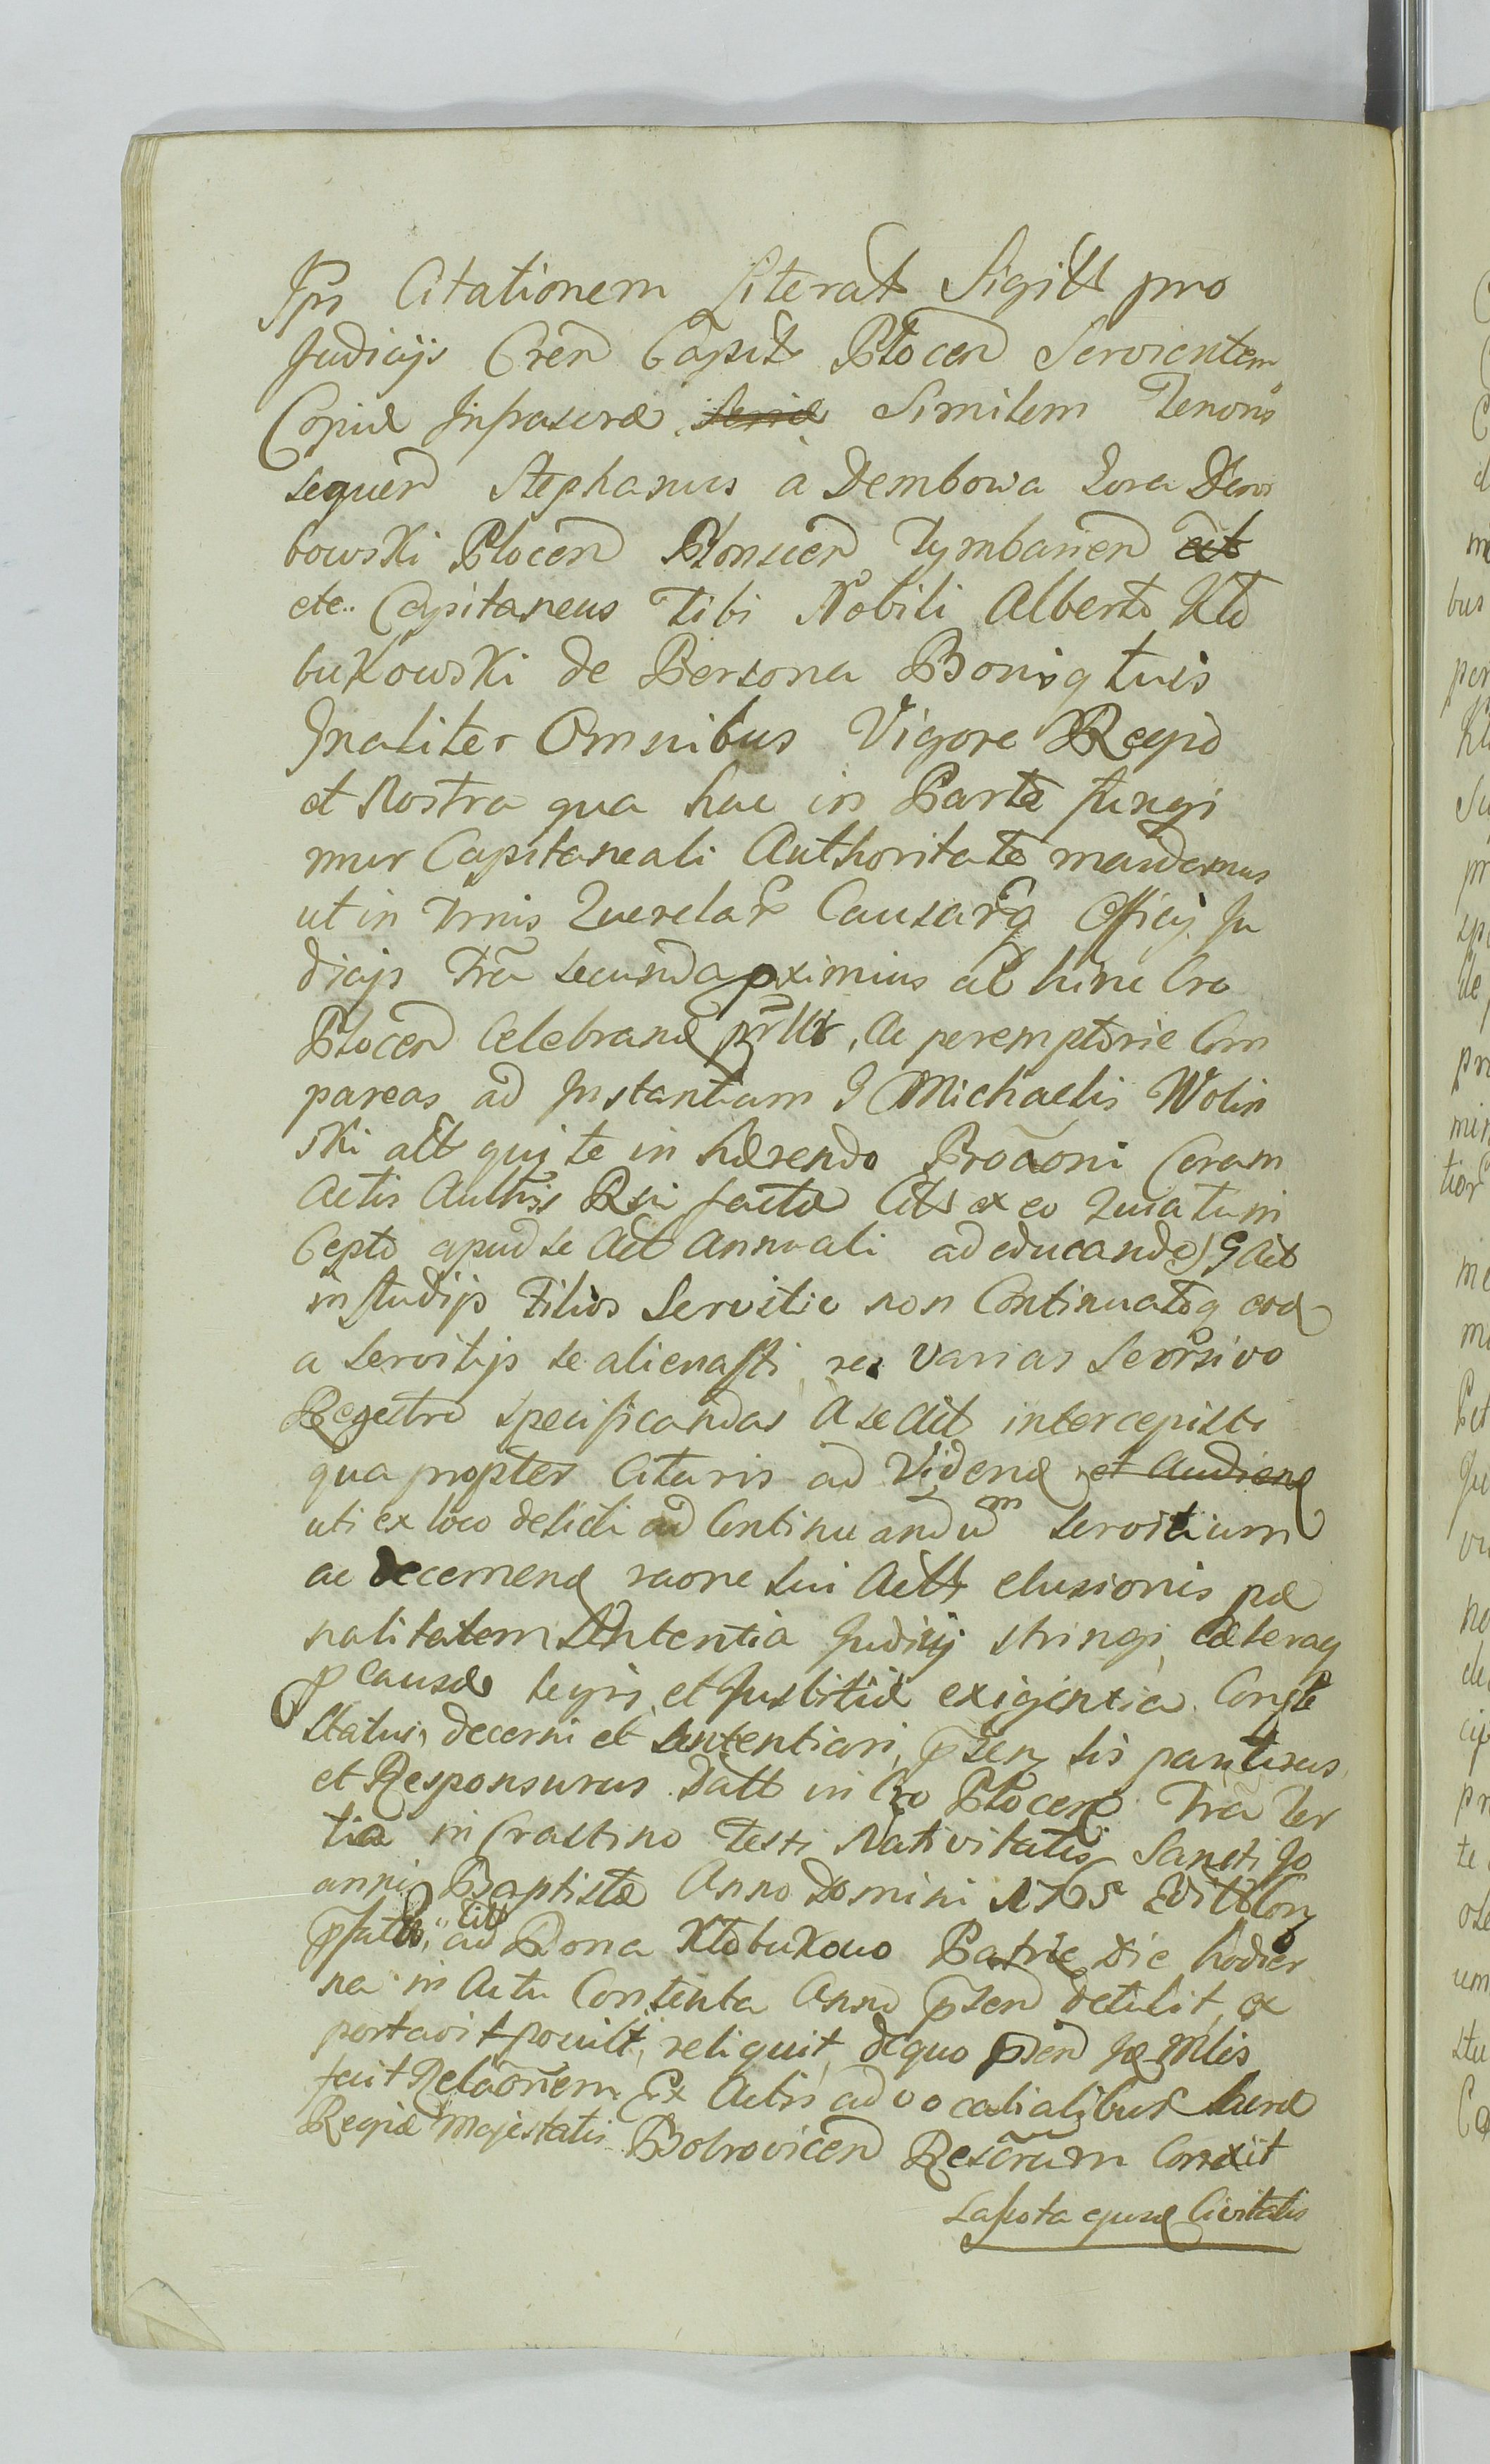 Ips Citationem Literat Sigill pro
Judicijs Cren Capit Plocen Servientem
Copiæ Infrascræ Seriæ Similem Tenoris
sequen Stephanus à Dembowa Gora Dem
bowski Plocen Plonscen Tymbarien
etc. Capitaneus Tibi Nobili Alberto Kło
bukowski de Persona Bonisq tuis
Gnaliter Omnibus Vigore Regia
et Nostra qua hac in Parte fungi
mur Capitaneali Authoritate mandamus
ut in Trnis Querelar Causarq Officij Ju
dicijs Fria secunda pximius ab hinc Cro
Plocen Celebrand prlr, Ac peremptorie Com
pareas ad Instantiam G Michaelis Wolin
ski act qui te in hærendo Proaoni Coram
Actis Authis Rsi facta Cit ex eo Quia tu in
Cepto apud se Act Annuali ad educandos G Act
in studijs Filios Servitio non Continuatoq eod
a Servitijs se alienasti res varias Seorsivo
Regestro specificandas à se Act intercepisti
qua propter Citaris ad Videnđ et Audienđ
uti ex loco delicti ad Continuandum servitium
ac decernenđ raone sui Act elusionis pæ
nalitatem Sententia Judicij stringi, Cæteraq
p causæ legis et Justitiæ exigentia. Congte
Statui, decerni et Sententiari, psens sis pariturus
et Responsurus. Datt in Cro Plocen Fria Ter
tia in Crastino Festi Nativitatis Sancti Jo
annis Baptistæ Anno Domini 1765
ad Bona Kłobukowo Patrie Die hodier
na in Actu Contenta Anno psen detulit, ex
portavit posuit, reliquit, de quo psen
fecit Relaonem Ex Actis advocatialibus Sacræ
Regiæ Majestatis Bobrovicen Rescrum Conxit
Lassota ejusd Civitatis